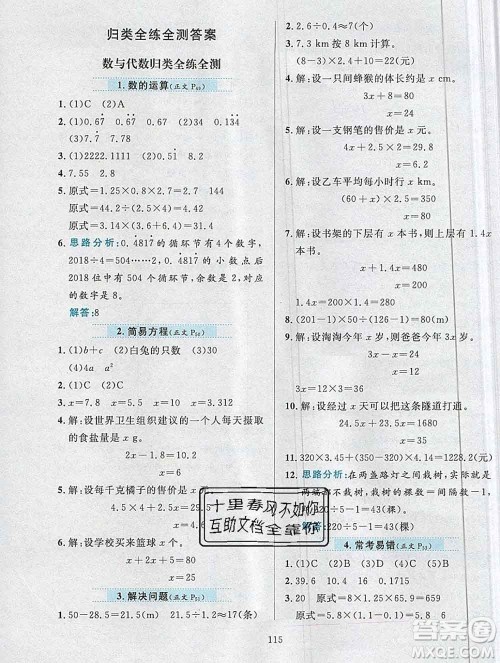 归类全练全测答案
数与代数归类全练全测
1. 数的运算(正文 P49)
1. (1)C (2)A
2. (1)0.67 0.67 0.67
(2)7.7 7.78
3. (1)2222.1111 (2)7.8
4. 7.52
5. 原式=1.25×0.8×2.9=2.9
原式=44.2÷(2.5×4)=4.42
原式=18.75
6. 思路分析:0.4817的循环节有4位数字,
2018÷4=504……2,0.4817的小数点后
2018位中有504个循环节,余数是2,对应
的数字是8。
解答:8
2. 简易方程(正文 P50)
1. (1)b+c (2)白兔的只数 (3)48 30
(4)4a a²
2. (1)C (2)C
3. x=0.75 x=10.8 x=3
4. 解:设世界卫生组织建议的一每天摄取
的食盐量是 x g。
2x-1.8=10.2
x=6
5. 解:设每千克橘子的售价是 x 元。
4x+2.5×4=24
x=3.5
6. 解:设学校买来篮球 x 个。
x+2x+5=80
x=25
3. 解决问题(正文 P51)
1. 50-28.5=21.5(m) 21.5÷1.2≈17(条)
2. 2.6÷0.4=6(瓶)……0.2(m)
3. 7.3 km按8 km计算。
(8-3)×2.4+10=22(元)
4. 解:设一只间蜂猴的体长约是 x cm。
3x+8=80
x=24
5. 解:设一支钢笔的售价是 x 元。
4x+2.5×2=29.8
x=6.2
6. 解:设乙车平均每小时行 x km。
(60+x)×2.4=300
x=65
7. 解:设书架的下层有 x 本书,则上层有1.4x
本书。
x+1.4x=240
x=100
1.4x=1.4×100=140
8. (201-1)×50÷(126-1)=80(m)
9. 解:设淘淘今年 x 岁,则爸爸今年3x岁。
3x-x=24
x=12
3x=3×12=36
10. 解:设 x 天可以把这条隧道打通。
24.5x+23.5x=1680
x=35
11. 320.45+(350-320)×0.5=335.45(元)
12. 思路分析:在两盏路灯之间栽树,就是两端
都不栽树,栽树的棵数=间隔数-1。
解答:220÷5-1=43(棵)
4. 常考易错(正文 P53)
1. (1)B (2)D (3)D
2. 40.3 4.6
3. 原式=5.8×(1.9-0.9)=5.8
十里春风不如你
互助文档全靠你
115